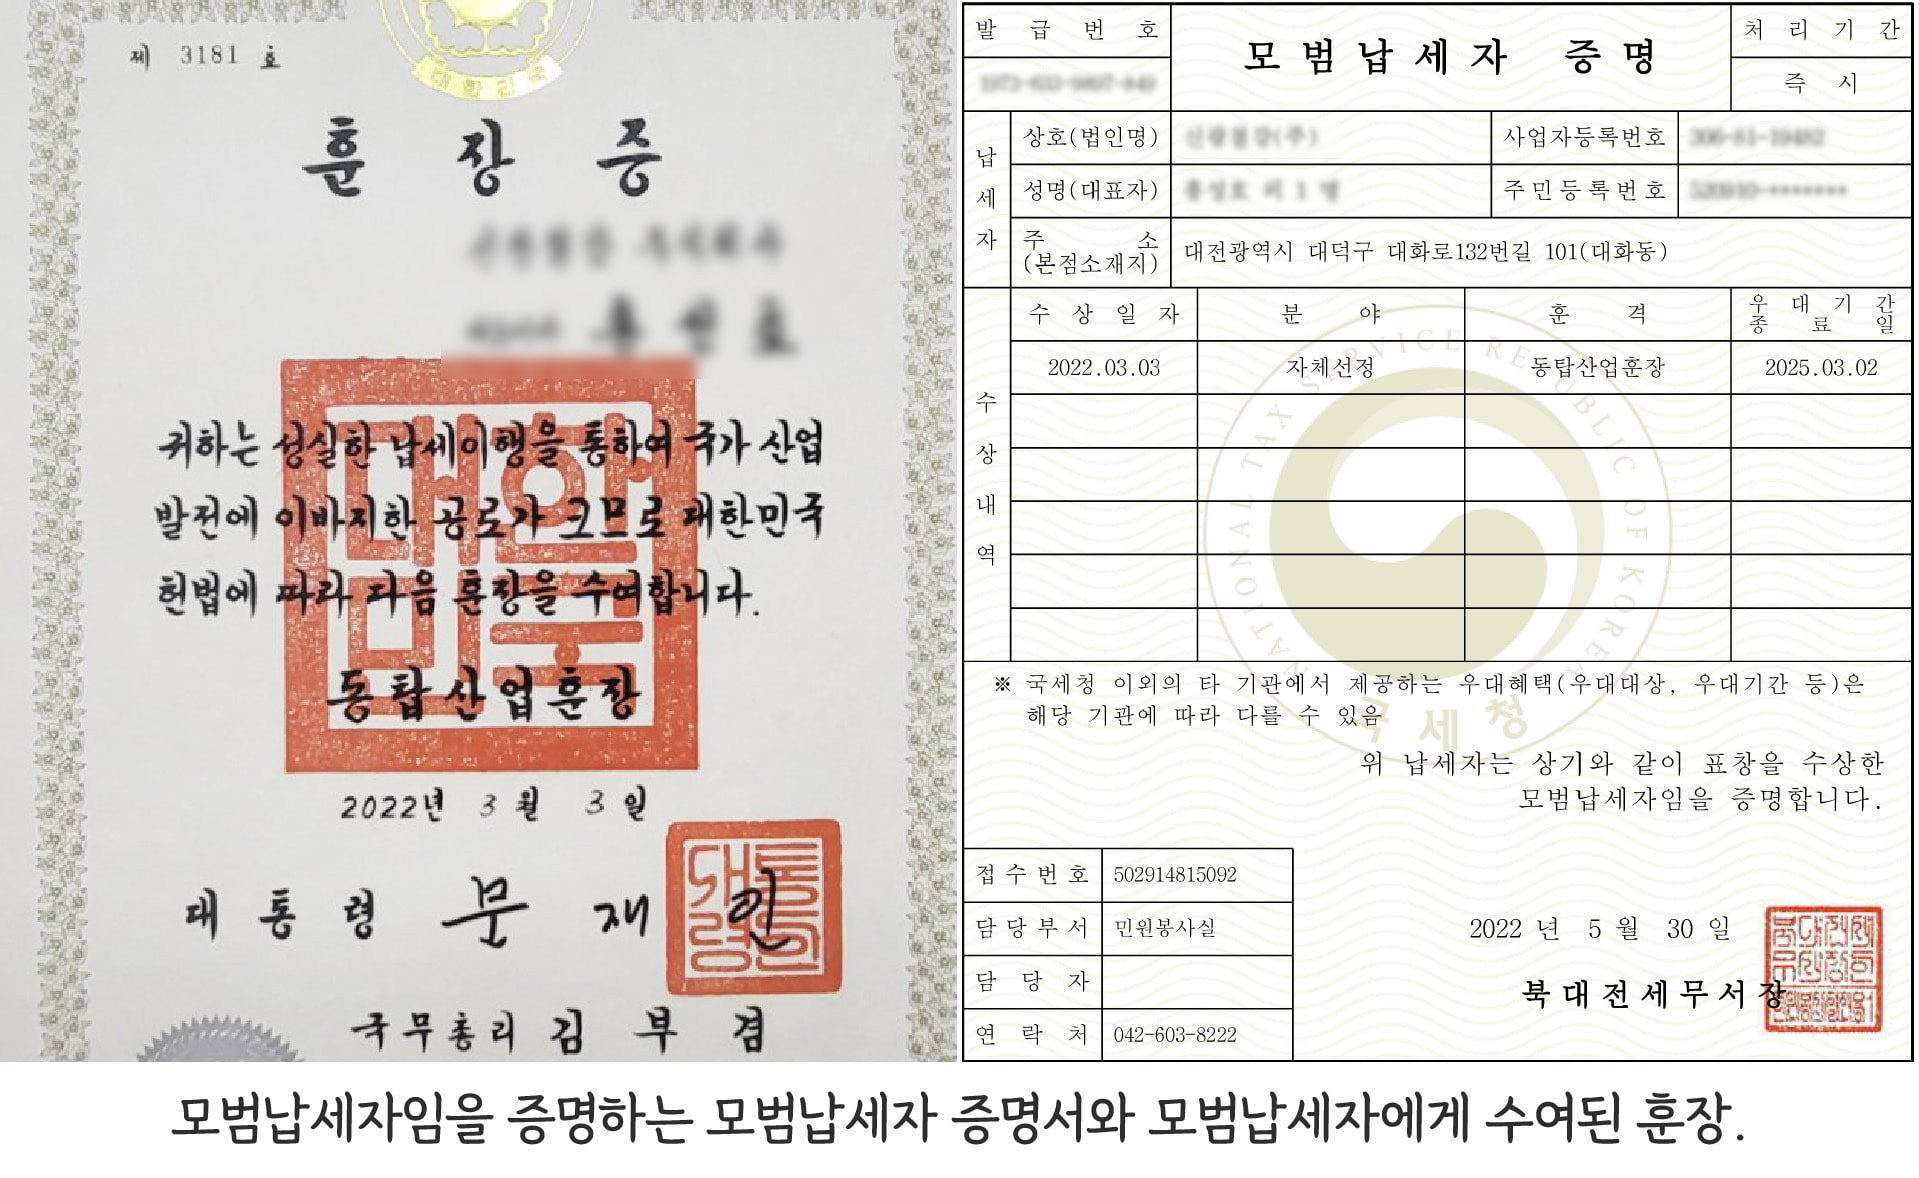 제 3181 호
대한민국
훈장증
귀하는 성실한 납세이행을 통하여 국가 산업
발전에 이바지한 공로가 크므로 대한민국
헌법에 따라 다음 훈장을 수여합니다.
동탑산업훈장
2022년 3월 3일
대통령 문재인
국무총리 김부겸
발급번호
모범납세자 증명
처리기간
즉시
납세자
상호(법인명)
사업자등록번호
성명(대표자)
주민등록번호
주소
(본점소재지)
대전광역시 대덕구 대화로132번길 101(대화동)
수상내역
수상일자
분야
훈격
우대기간
종료일
2022.03.03
자체선정
동탑산업훈장
2025.03.02
NATIONAL TAX SERVICE REPUBLIC OF KOREA
국세청
※ 국세청 이외의 타 기관에서 제공하는 우대혜택(우대대상, 우대기간 등)은
해당 기관에 따라 다를 수 있음
위 납세자는 상기와 같이 표창을 수상한
모범납세자임을 증명합니다.
접수번호 502914815092
담당부서 민원봉사실
담당자
연락처 042-603-8222
2022 년 5 월 30 일
북대전세무서장
모범납세자임을 증명하는 모범납세자 증명서와 모범납세자에게 수여된 훈장.